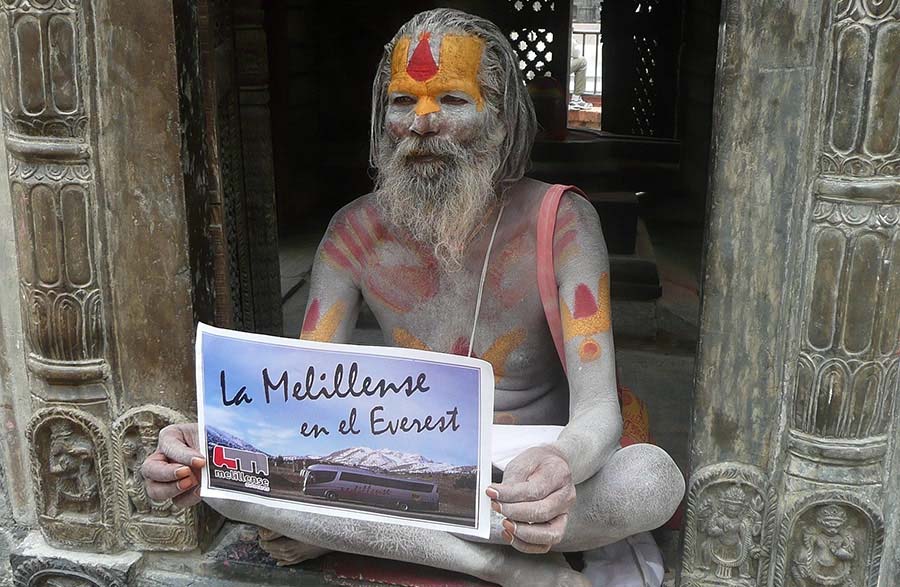 La Melillense
en el Everest
melillense